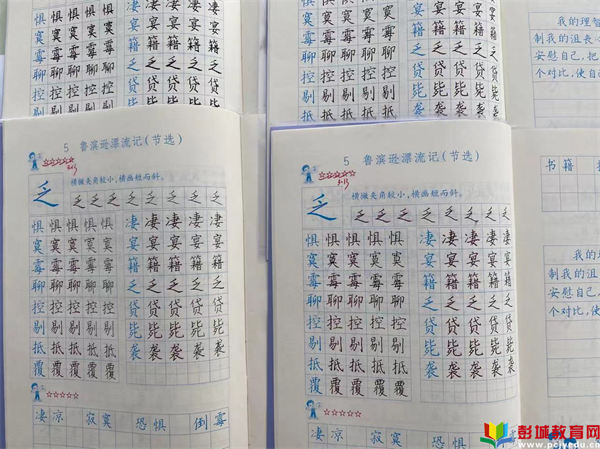 惧 惧 惧 惧 惧 凄 凄 凄 凄 凄
寞 寞 寞 寞 寞 宴 宴 宴 宴 宴
霉 霉 霉 霉 霉 籍 籍 籍 籍 籍
聊 聊 聊 聊 聊 乏 乏 乏 乏 乏
控 控 控 控 控 贷 贷 贷 贷 贷
剔 剔 剔 剔 剔 毙 毙 毙 毙 毙
惧 惧 惧 惧 惧 凄 凄 凄 凄 凄
寞 寞 寞 寞 寞 宴 宴 宴 宴 宴
霉 霉 霉 霉 霉 籍 籍 籍 籍 籍
聊 聊 聊 聊 聊 乏 乏 乏 乏 乏
控 控 控 控 控 贷 贷 贷 贷 贷
剔 剔 剔 剔 剔 毙 毙 毙 毙 毙
我的理智
制我的沮丧心
安慰自己,把
个对比,使自己
5 鲁滨逊漂流记(节选)
横撇夹角较小,横画短而斜。
乏 乏 乏 乏 乏 乏 乏 乏 乏
惧 惧 惧 惧 惧 凄 凄 凄 凄 凄
寞 寞 寞 寞 寞 宴 宴 宴 宴 宴
霉 霉 霉 霉 霉 籍 籍 籍 籍 籍
聊 聊 聊 聊 聊 乏 乏 乏 乏 乏
控 控 控 控 控 贷 贷 贷 贷 贷
剔 剔 剔 剔 剔 毙 毙 毙 毙 毙
抵 抵 抵 抵 抵 袭 袭 袭 袭 袭
覆 覆 覆 覆 覆
凄凉 寂寞 恐惧 倒霉
5 鲁滨逊漂流记(节选)
横撇夹角较小,横画短而斜。
乏 乏 乏 乏 乏 乏 乏 乏 乏
惧 惧 惧 惧 惧 凄 凄 凄 凄 凄
寞 寞 寞 寞 寞 宴 宴 宴 宴 宴
霉 霉 霉 霉 霉 籍 籍 籍 籍 籍
聊 聊 聊 聊 聊 乏 乏 乏 乏 乏
控 控 控 控 控 贷 贷 贷 贷 贷
剔 剔 剔 剔 剔 毙 毙 毙 毙 毙
抵 抵 抵 抵 抵 袭 袭 袭 袭 袭
覆 覆 覆 覆 覆
凄凉 寂寞 恐惧
书籍
我的
制我的沮
安慰自己,
个对比,使
彭城教育网
www.pcjyedu.cn